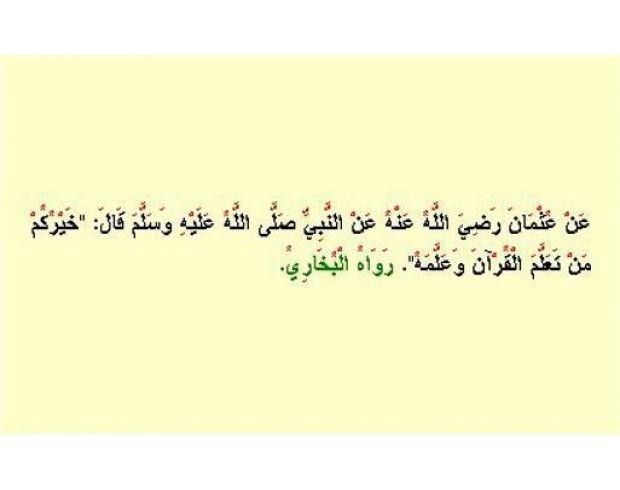 عَنْ عُثْمَانَ رَضِيَ اللَّهُ عَنْهُ عَنْ النَّبِيِّ صَلَّى اللَّهُ عَلَيْهِ وَسَلَّمَ قَالَ: "خَيْرُكُمْ
مَنْ تَعَلَّمَ الْقُرْآنَ وَعَلَّمَهُ". رَوَاهُ الْبُخَارِيُّ.